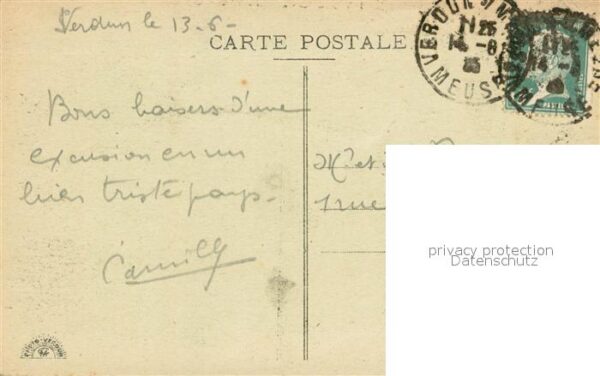 Verdun le 13-6-
CARTE POSTALE
VERDUN S/ MEUSE
MEUSE
Bons baisers d'une
excusion en un
bien triste pays-
Camille
Mr et
1 rue
privacy protection
Datenschutz